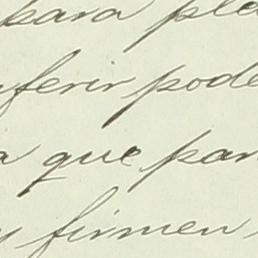 para ple
ferir pode
a que par
y firmen